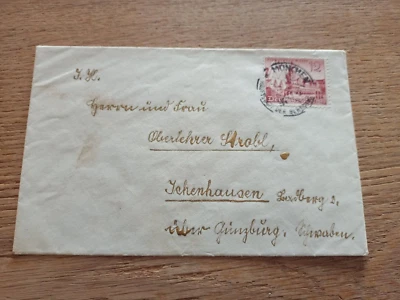 MÜNCHEN
12
J. H.
Herrn und Frau
Oberlehrer Strobl,
Ichenhausen
über Günzburg, Schwaben.